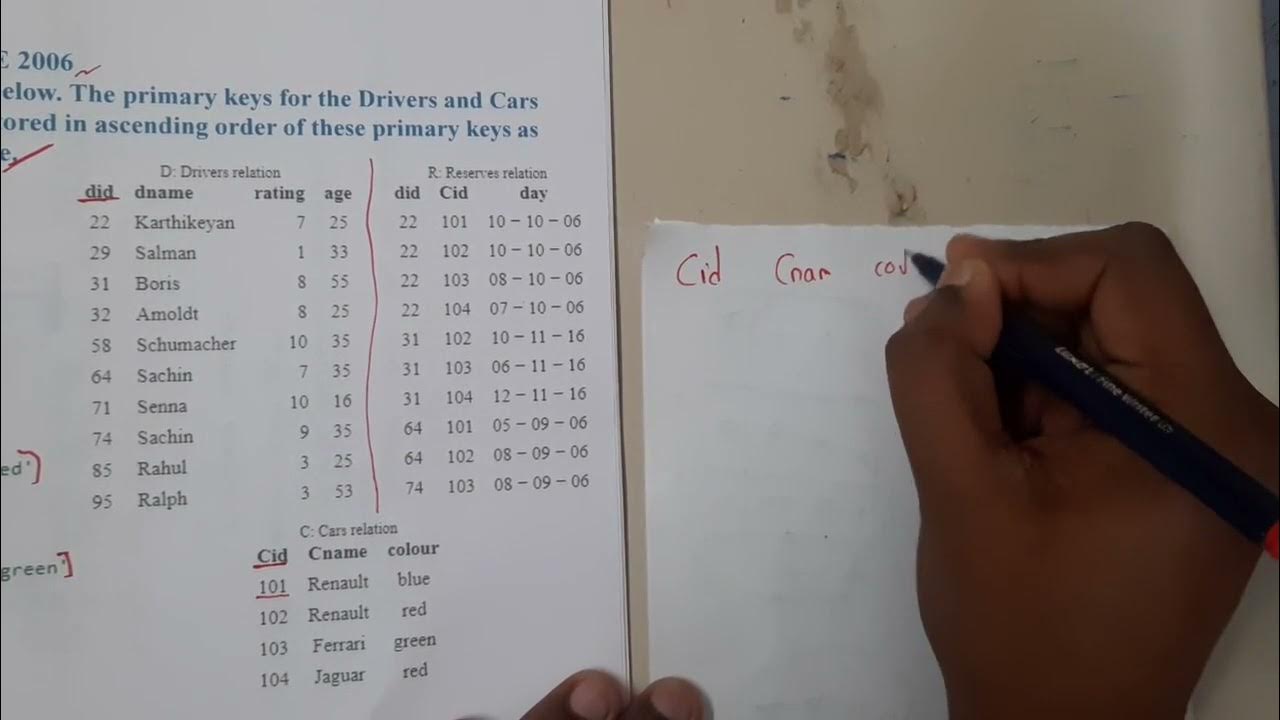 E 2006
elow. The primary keys for the Drivers and Cars
ored in ascending order of these primary keys as
e,
D: Drivers relation
did dname rating age
22 Karthikeyan 7 25
29 Salman 1 33
31 Boris 8 55
32 Amoldt 8 25
58 Schumacher 10 35
64 Sachin 7 35
71 Senna 10 16
74 Sachin 9 35
85 Rahul 3 25
95 Ralph 3 53
R: Reserves relation
did Cid day
22 101 10 – 10 – 06
22 102 10 – 10 – 06
22 103 08 – 10 – 06
22 104 07 – 10 – 06
31 102 10 – 11 – 16
31 103 06 – 11 – 16
31 104 12 – 11 – 16
64 101 05 – 09 – 06
64 102 08 – 09 – 06
74 103 08 – 09 – 06
ed')
green')
C: Cars relation
Cid Cname colour
101 Renault blue
102 Renault red
103 Ferrari green
104 Jaguar red
Cid Cnam col